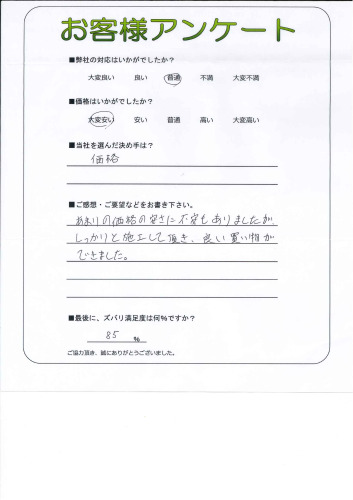 お客様アンケート
■弊社の対応はいかがでしたか?
大変良い 良い 普通 不満 大変不満
■価格はいかがでしたか?
大変安い 安い 普通 高い 大変高い
■当社を選んだ決め手は?
価格
■ご感想・ご要望などをお書き下さい。
あまりの価格の安さに不安もありましたが
しっかりと施工して頂き、良い買い物が
できました。
■最後に、ズバリ満足度は何%ですか?
85 %
ご協力頂き、誠にありがとうございました。